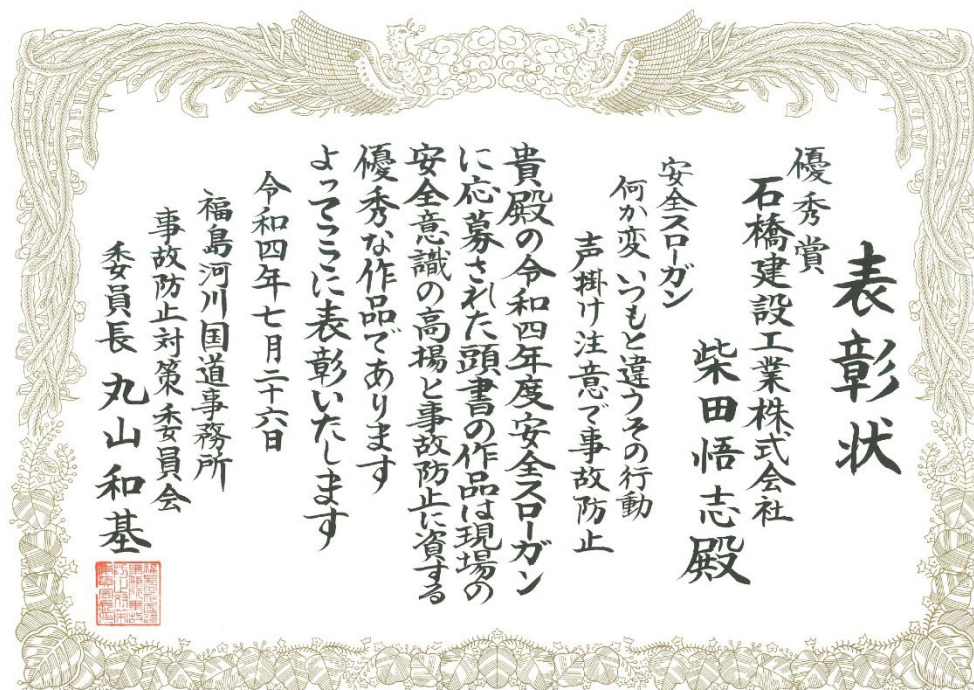 表彰状
優秀賞
石橋建設工業株式会社
柴田悟志殿
安全スローガン
何か変 いつもと違うその行動
声掛け注意で事故防止
貴殿の令和四年度安全スローガン
に応募された頭書の作品は現場の
安全意識の高揚と事故防止に資する
優秀な作品であります
よってここに表彰いたします
令和四年七月二十六日
福島河川国道事務所
事故防止対策委員会
委員長 丸山和基